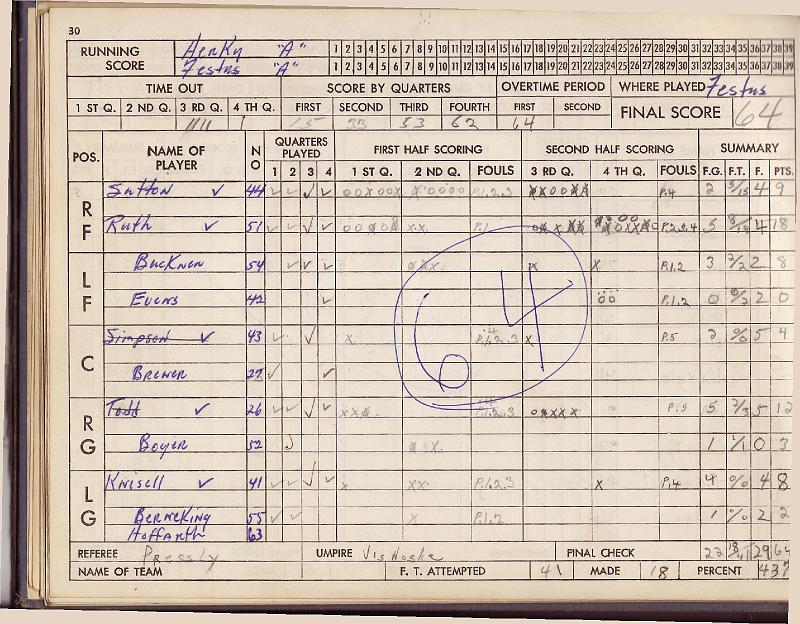 30
RUNNING SCORE Herky "A" 1 2 3 4 5 6 7 8 9 10 11 12 13 14 15 16 17 18 19 20 21 22 23 24 25 26 27 28 29 30 31 32 33 34 35 36 37 38 39
Festus "A" 1 2 3 4 5 6 7 8 9 10 11 12 13 14 15 16 17 18 19 20 21 22 23 24 25 26 27 28 29 30 31 32 33 34 35 36 37 38 39
TIME OUT SCORE BY QUARTERS OVERTIME PERIOD WHERE PLAYED Festus
1 ST Q. 2 ND Q. 3 RD Q. 4 TH Q. FIRST SECOND THIRD FOURTH FIRST SECOND FINAL SCORE 64
15 33 53 62 64
POS. NAME OF PLAYER NO QUARTERS PLAYED FIRST HALF SCORING SECOND HALF SCORING SUMMARY
1 2 3 4 1 ST Q. 2 ND Q. FOULS 3 RD Q. 4 TH Q. FOULS F.G. F.T. F. PTS.
RF Sutton 44 P.1.2.3 P.4 2 5/15 4 9
Ruth 51 P.1 P.2.3.4 5 4 18
LF Buckner 54 P.1.2 3 2/2 2 8
Evens 42 P.1.2 0 0/2 2 0
C Simpson 43 P.1.2.3 4 P.5 2 0/0 5 4
Brewer 27
RG Todd 26 P.1.2.3 4 P.5 5 2/3 5 12
Boyer 52 1 1/1 0 3
LG Knisell 41 P.1.2.3 P.4 4 0/0 4 8
Berneking 55 P.1.2 1 0/0 2 2
Hoffarth 63
64
REFEREE Pressly UMPIRE FINAL CHECK 22 18/41 29 64
NAME OF TEAM F. T. ATTEMPTED 41 MADE 18 PERCENT 437